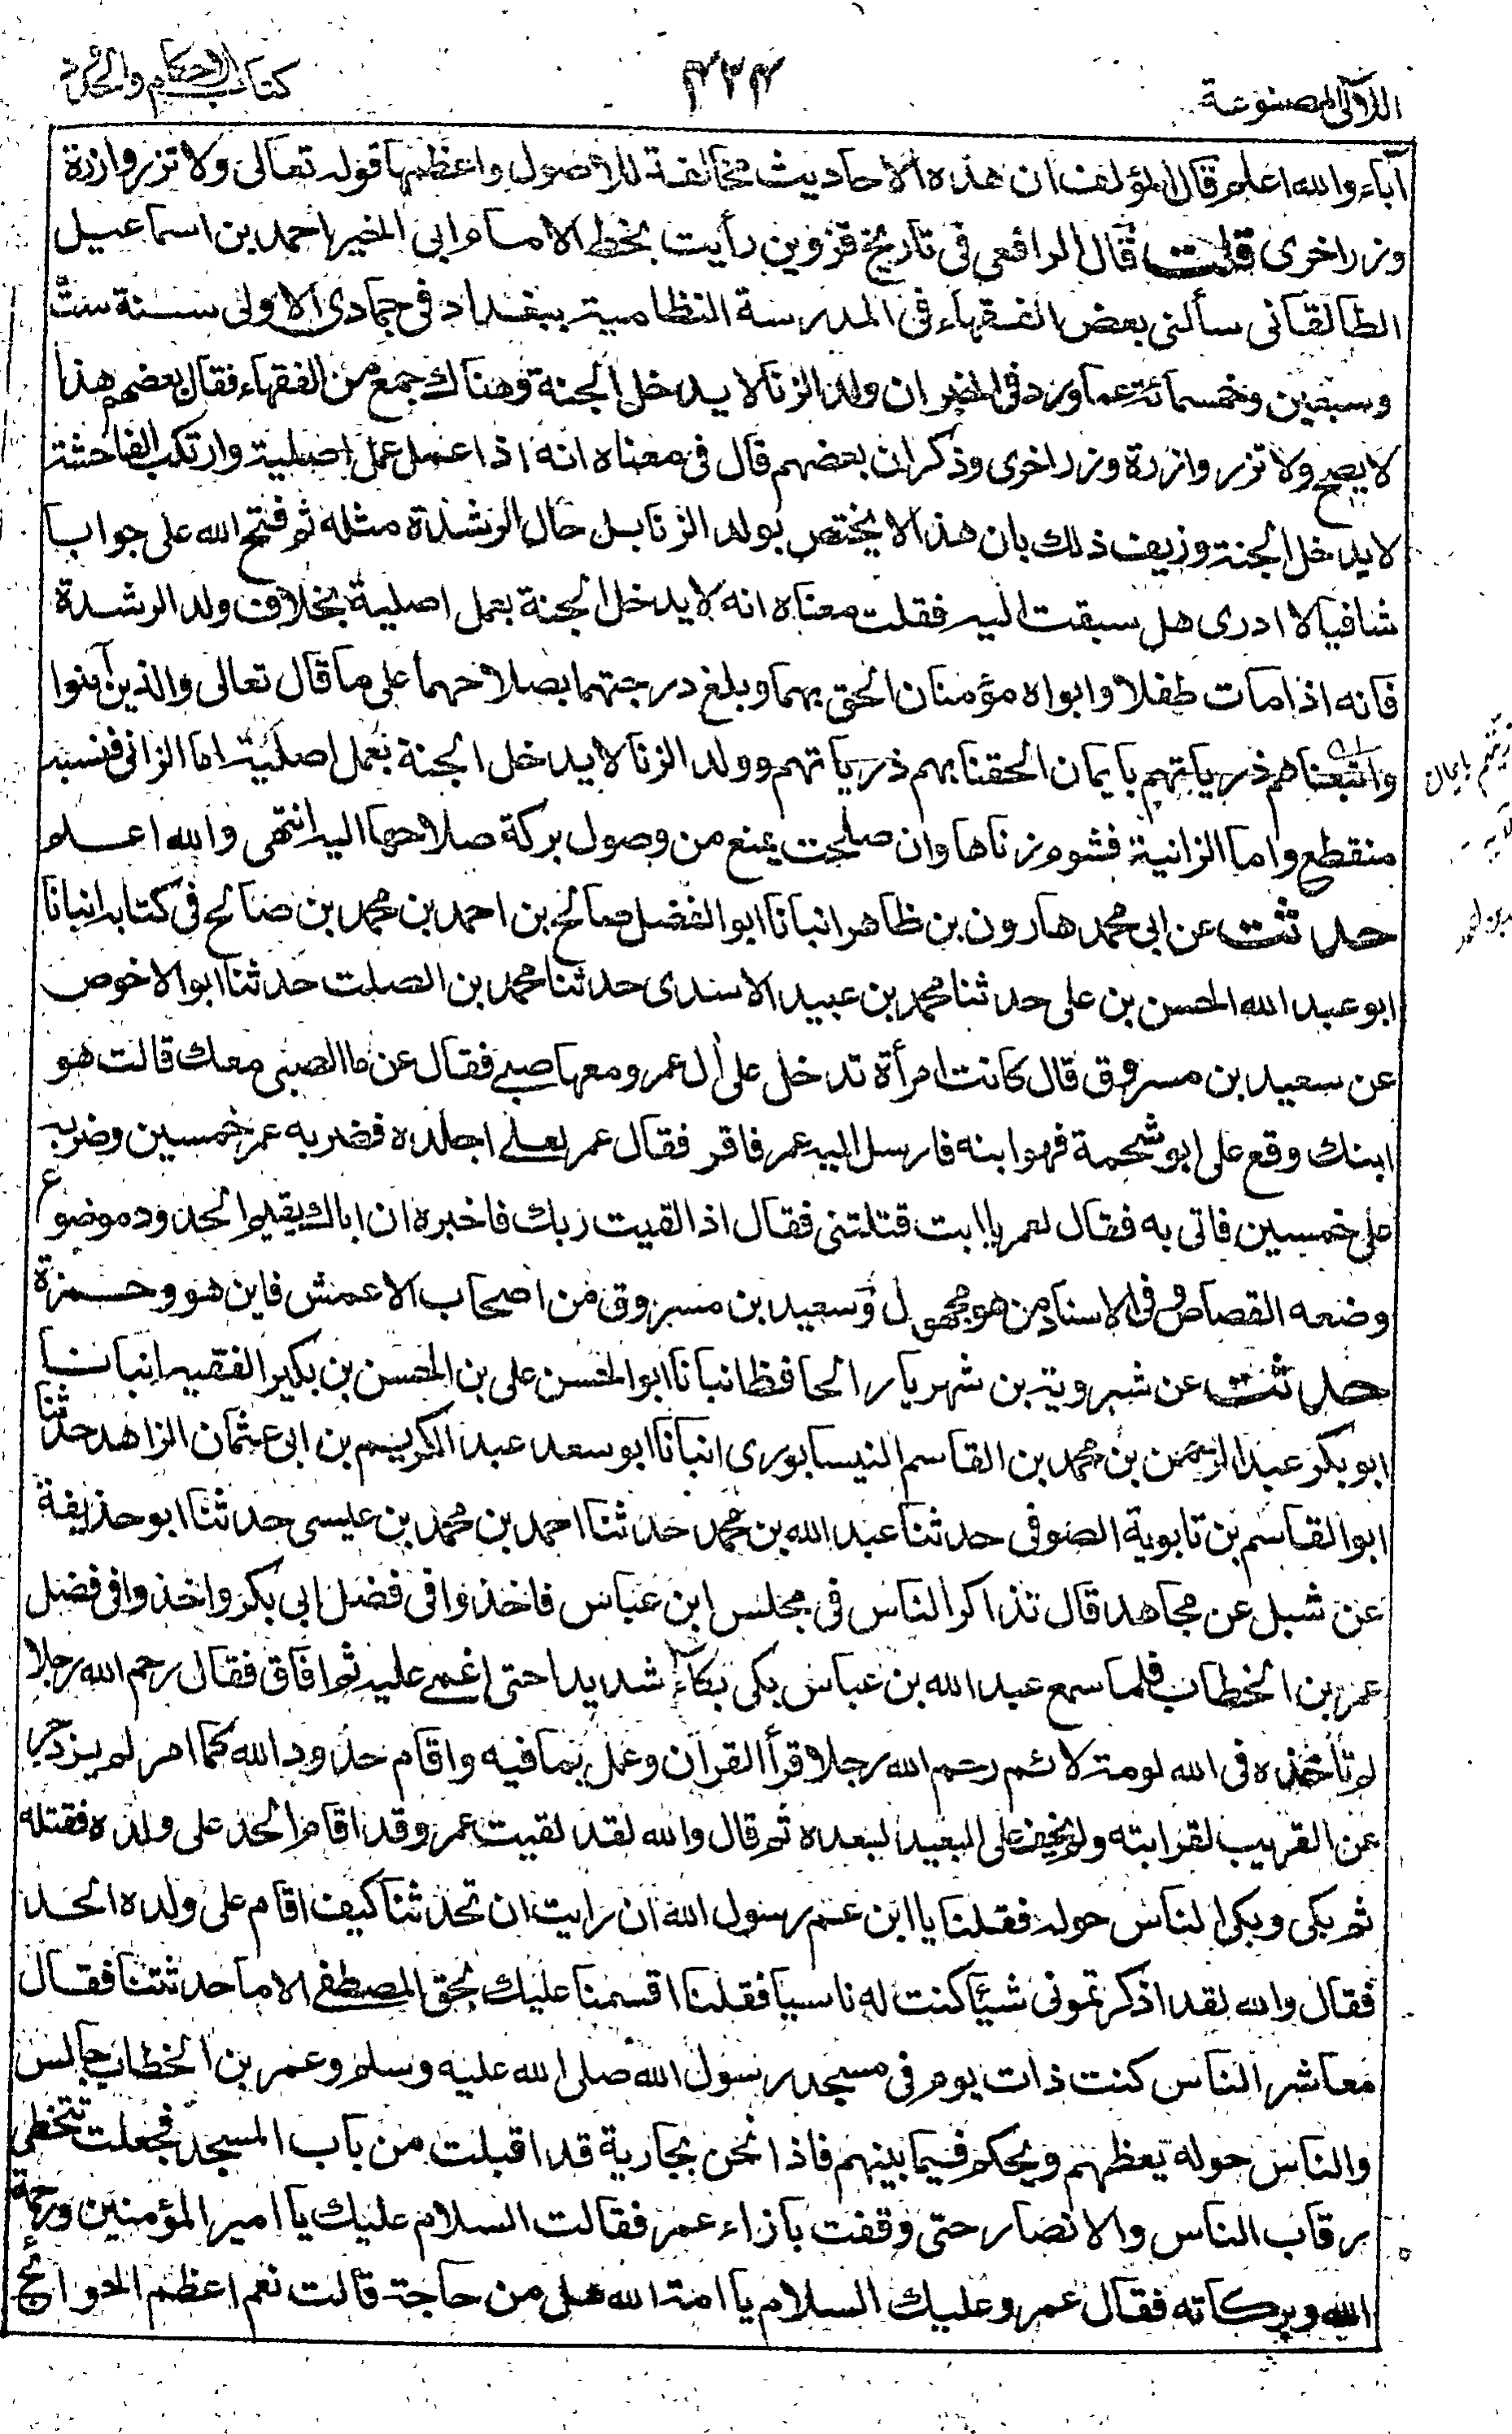 اللآلى المصنوعة
كتاب الاحكام والحدود
آباء والله اعلم قال المؤلف ان هذه الاحاديث مخالفة للاصول واعظمها قوله تعالى ولا تزر وازرة
وزر اخرى قلت قال الرافعى فى تاريخ قزوين رأيت بخط الامام ابى الخير احمد بن اسماعيل
الطالقانى سألنى بعض الفقهاء فى المدرسة النظامية ببغداد فى جمادى الاولى سنة ستّ
وسبعين وخمسمائة عما ورد فى الخبر ان ولد الزنا لا يدخل الجنة وهناك جمع من الفقهاء فقال بعضهم هذا
لا يصح ولا تزر وازرة وزر اخرى وذكر ان بعضهم قال فى معناه انه اذا عمل عمل اصلية وارتكب الفاحشة
لا يدخل الجنة وزيف ذلك بان هذا لا يختص بولد الزنا بل حال الرشدة مثله ثم فتح الله على جوابا
شافيا لا ادرى هل سبقت اليه فقلت معناه انه لا يدخل الجنة بعمل اصلية بخلاف ولد الرشدة
فانه اذا مات طفلا وابواه مؤمنان الحق بهما وبلغ درجتهما بصلاحهما على ما قال تعالى والذين آمنوا
واتبعناهم ذرياتهم بايمان الحقنا بهم ذرياتهم وولد الزنا لا يدخل الجنة بعمل اصلية اما الزانى فنسبه
منقطع واما الزانية فشوم زناها وان صلحت يمنع من وصول بركة صلاحها اليه انتهى والله اعلم
حدثت عن ابى محمد هارون بن ظاهر انبانا ابو الفضل صالح بن احمد بن محمد بن صالح فى كتابه انبانا
ابو عبد الله الحسن بن على حدثنا محمد بن عبيد الاسدى حدثنا محمد بن الصلت حدثنا ابو الاخوص
عن سعيد بن مسروق قال كانت امرأة تدخل على ال عمر ومعها صبى فقال عن ما الصبى معك قالت هو
ابنك وقع على ابو شحمة فهو ابنه فارسل اليه عمر فاقر فقال عمر لعلى اجلده فضربه عمر خمسين وضربه
على خمسين فاتى به فقال لعمر يا ابت قتلتنى فقال اذا لقيت ربك فاخبره ان اباك يقيم الحدود موضوع
وضعه القصاص وفى الاسناد من هو مجهول وسعيد بن مسروق من اصحاب الاعمش فاين هو وحمزة
حدثت عن شيرويه بن شهريار الحافظ انبانا ابو الحسن على بن الحسن بن بكير الفقيه انبانا
ابو بكر عبد الرحمن بن محمد بن القاسم النيسابورى انبانا ابو سعد عبد الكريم بن ابى عثمان الزاهد حدثنا
ابو القاسم بن تابوية الصوفى حدثنا عبد الله بن محمد حدثنا احمد بن محمد بن عيسى حدثنا ابو حذيفة
عن شبل عن مجاهد قال تذاكر الناس فى مجلس ابن عباس فاخذوا فى فضل ابى بكر واخذوا فى فضل
عمر بن الخطاب فلما سمع عبد الله بن عباس بكى بكاء شديدا حتى اغمى عليه ثم افاق فقال رحم الله رجلا
لم تأخذه فى الله لومة لائم رحم الله رجلا قرأ القرآن وعمل بما فيه واقام حدود الله كما امر لم يزدجر
عن القريب لقرابته ولم يخف على البعيد لبعده ثم قال والله لقد لقيت عمر وقد اقام الحد على ولده فقتله
ثم بكى وبكى الناس حوله فقلنا يا ابن عم رسول الله ان رايت ان تحدثنا كيف اقام على ولده الحد
فقال والله لقد اذكرتمونى شيئا كنت له ناسيا فقلنا اقسمنا عليك بحق المصطفى الا ما حدثتنا فقال
معاشر الناس كنت ذات يوم فى مسجد رسول الله صلى الله عليه وسلم وعمر بن الخطاب جالس
والناس حوله يعظهم ويحكم فيما بينهم فاذا نحن بجارية قد اقبلت من باب المسجد فجعلت تتخطى
برقاب الناس والانصار حتى وقفت بازاء عمر فقالت السلام عليك يا امير المؤمنين ورحمة
الله وبركاته فقال عمر وعليك السلام يا امة الله هل من حاجة قالت نعم اعظم الحوائج